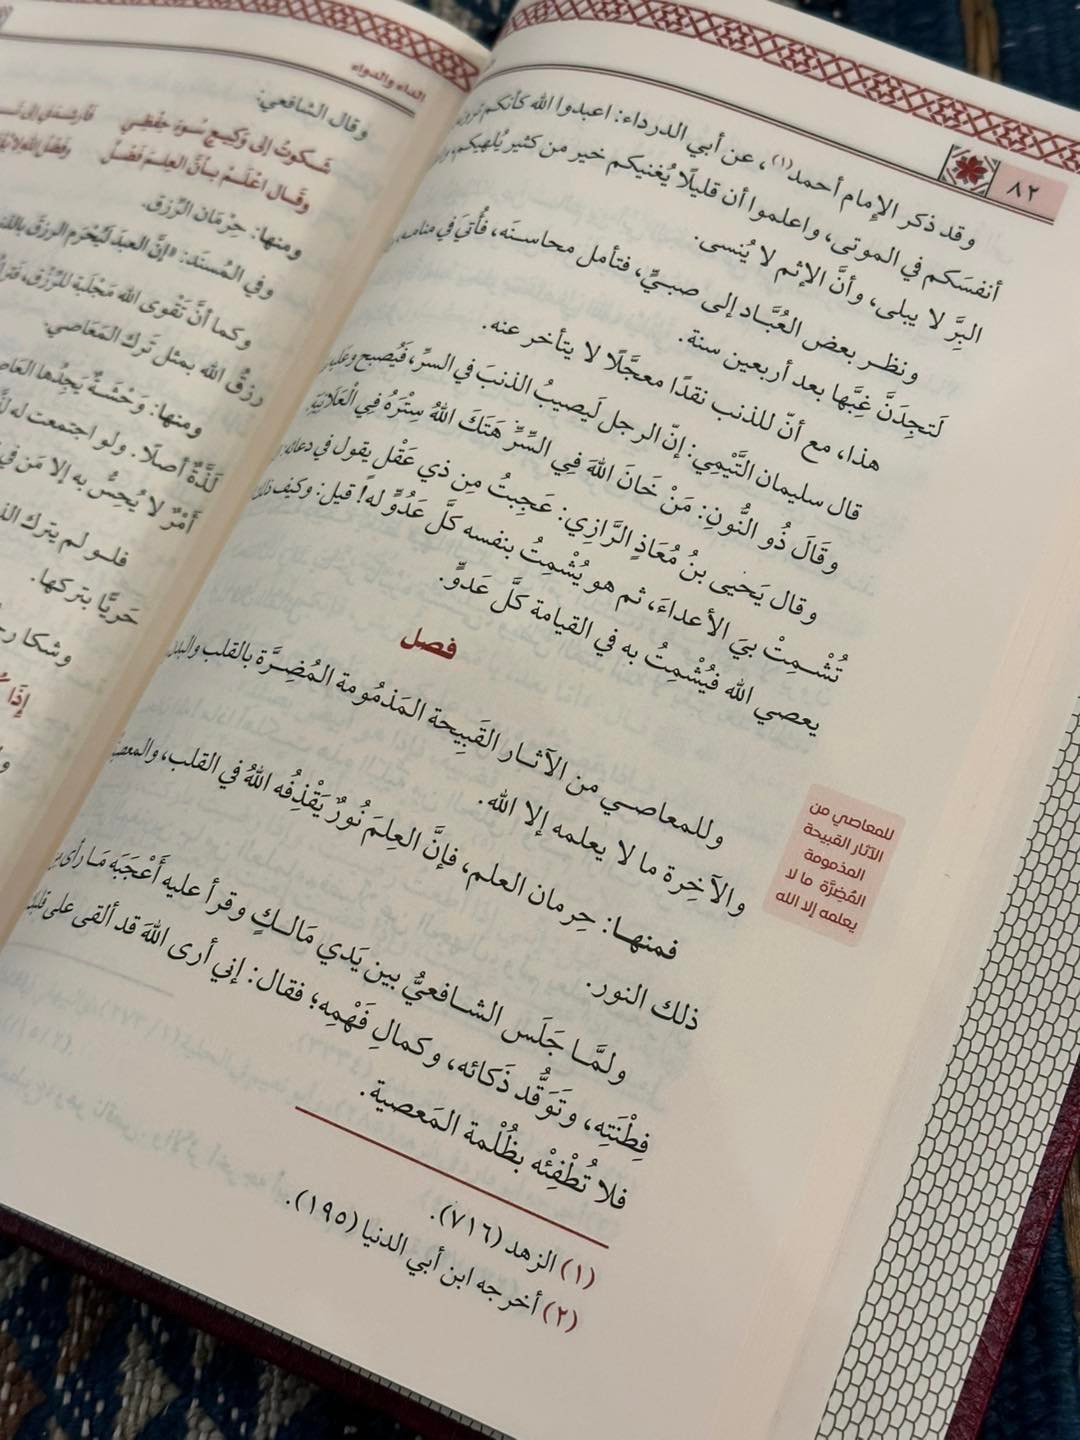 ٨٢
وقد ذكر الإمام أحمد(١)، عن أبي الدرداء: اعبدوا الله كأنكم
أنفسَكم في الموتى، واعلموا أن قليلًا يُغنيكم خير من كثير يُلهيكم،
البِرَّ لا يبلى، وأنَّ الإثم لا يُنسى.
ونظر بعض العُبَّاد إلى صبيٍّ، فتأمل محاسنَه، فأُتيَ في منامه،
لَتجِدَنَّ غِبَّها بعد أربعين سنة.
هذا، مع أنّ للذنب نقدًا معجَّلًا لا يتأخر عنه.
قال سليمان التَّيْمِي: إنّ الرجل لَيصيبُ الذنبَ في السرِّ، فَيُصبح
وقَالَ ذُو النُّونِ: مَنْ خَانَ اللهَ فِي السِّرِّ هَتَكَ اللهُ سِتْرَهُ فِي الْعَلَانِيَةِ.
وقال يَحيى بنُ مُعَاذٍ الرَّازِي: عَجِبتُ مِن ذي عَقْل يقول في دعائه:
تُشْمِتْ بيَ الأعداءَ، ثم هو يُشْمِتُ بنفسه كلَّ عَدُوٍّ له! قيل: وكيف ذلك
يعصي الله فيُشْمِتُ به في القيامة كلَّ عَدوٍّ.
فصل
وللمعاصي من الآثار القَبِيحة المَذمُومة المُضِرَّة بالقلب
والآخِرة ما لا يعلمه إلا الله.
فمنها: حِرمان العلم، فإنَّ العِلمَ نُورٌ يَقْذِفُه اللهُ في القلب،
ذلك النور.
ولمَّا جَلَس الشافعيُّ بين يَدي مَالكٍ وقرأ عليه أَعْجَبَه مَا رأى
فِطْنَتِه، وتَوَقُّد ذَكائه، وكمالِ فَهْمِه؛ فقال: إني أرى اللهَ قد ألقى على
فلا تُطْفِئْه بظُلْمة المَعصية.
للمعاصي من
الآثار القبيحة
المذمومة
المُضِرَّة ما لا
يعلمه إلا الله
(١) الزهد (٧١٦).
(٢) أخرجه ابن أبي الدنيا (١٩٥).
الداء والدواء
وقال الشافعي:
شَكوتُ إلى وَكِيعٍ سُوءَ حِفْظِي
وقَال اعْلَمْ بأنَّ العِلمَ فَضْلٌ
ومنها: حِرْمَان الرِّزق.
وفي المُسنَد: «إنَّ العبدَ لَيُحْرَم الرزقَ
وكما أنَّ تَقْوى الله مَجْلَبة للرِّزْق،
رزقُ الله بمثل تَرك المَعَاصي.
ومنها: وَحْشَةٌ يَجِدُها
لَذَّةٌ أصلًا. ولو اجتمعت له
أمْرٌ لا يُحِسُّ به إلا مَن في
فلو لم يترك
حَرِيًّا بتركها.
وشكا
إذَا